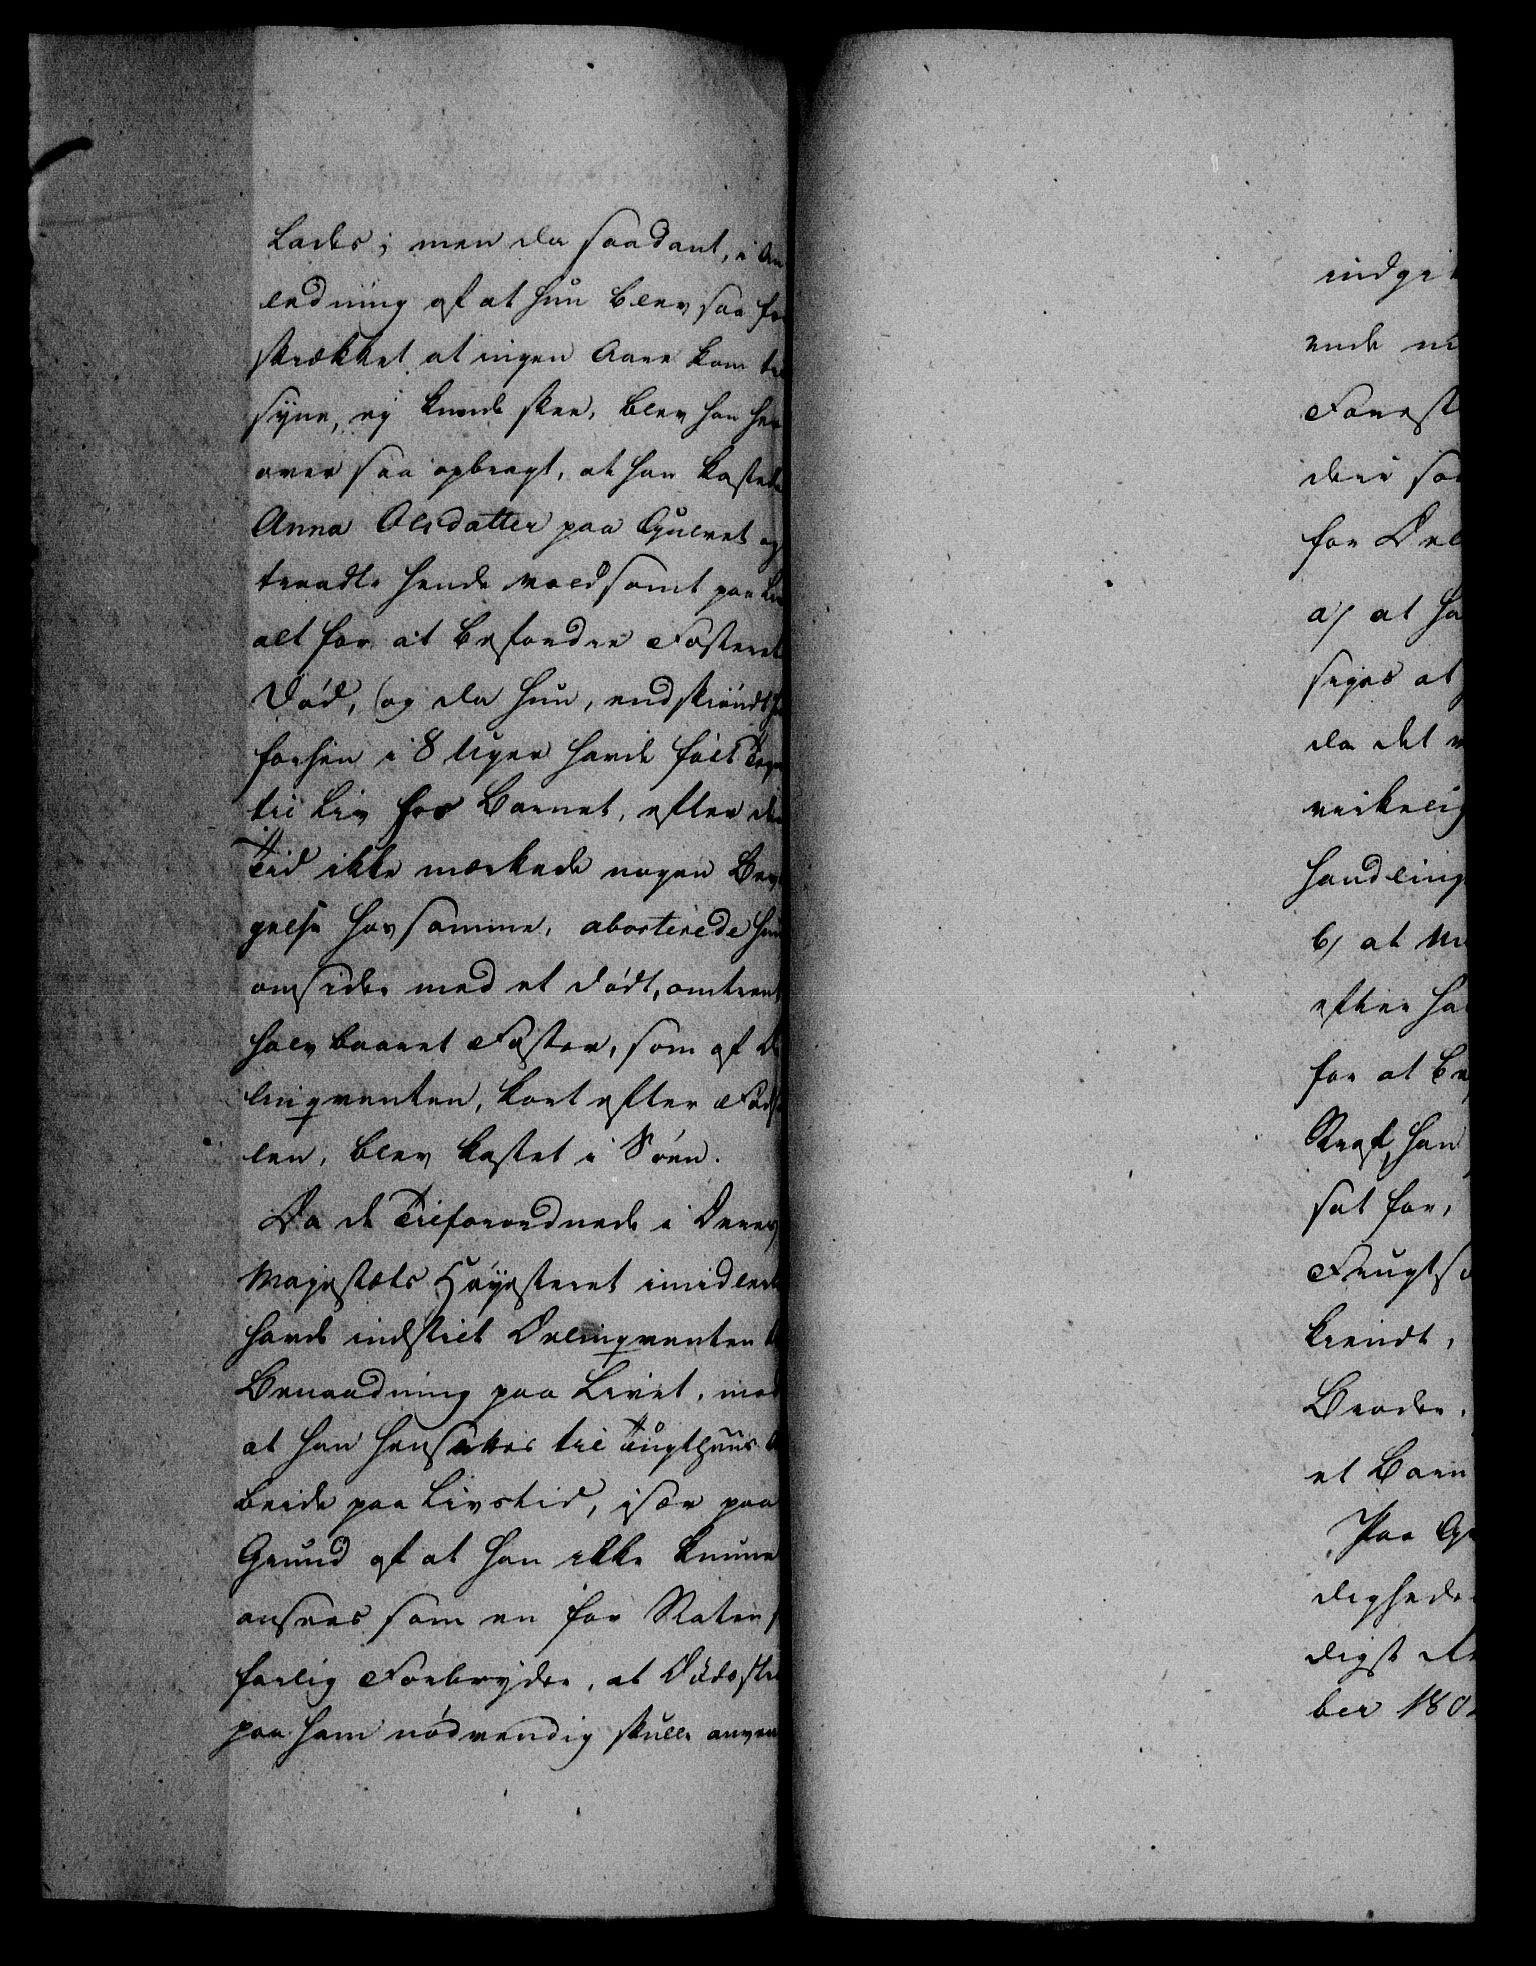 lades; men da saadant, i An
ledning af at hun blev saa for
skrækket at ingen Aare kom til
syne, ej kunde skee, blev han her
over saa opbragt, at han kastede
Anna Olsdatter paa Gulvet og
traadte hende voldsomt paa Liv
alt for at befordre Fosterets
Død, og da hun, endskiøndt hun
forhen i 8 Uger havde følt Tegn
til Liv hos Barnet, efter den
Tid ikke mærkede nogen Bevæ
gelse hos samme, aborterede hun
omsider med et dødt, omtrent
halvbaaret Foster, som af De
linqventen, kort efter Føds
len, blev kastet i Søen.
Da de Tilforordnede i Deres
Majestæts Høyesteret imidlertid
havde indstilt Delinqventen til
Benaadning paa Livet, mod
at han hensættes til Tugthuus A
beide paa Livstid, især paa
Grund af at han ikke kunne
ansees som en for Staten saa
farlig Forbryder, at Dødsstraf
paa ham nødvendig skulle anven
indgi
ende m
Forest
deri saa
for Del
a) at ha
siges at
da det
virkelig
Handling
b) at
efter ha
for at be
Straf, han
sat for,
Frugts
kiendt,
Broder,
et Barn
Paa Gr
digheder
digst
ber 180